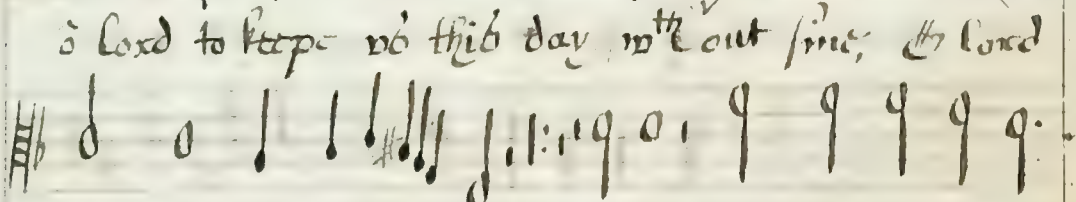 ô Lord to keepe vs this day wth out sinne; O Lord